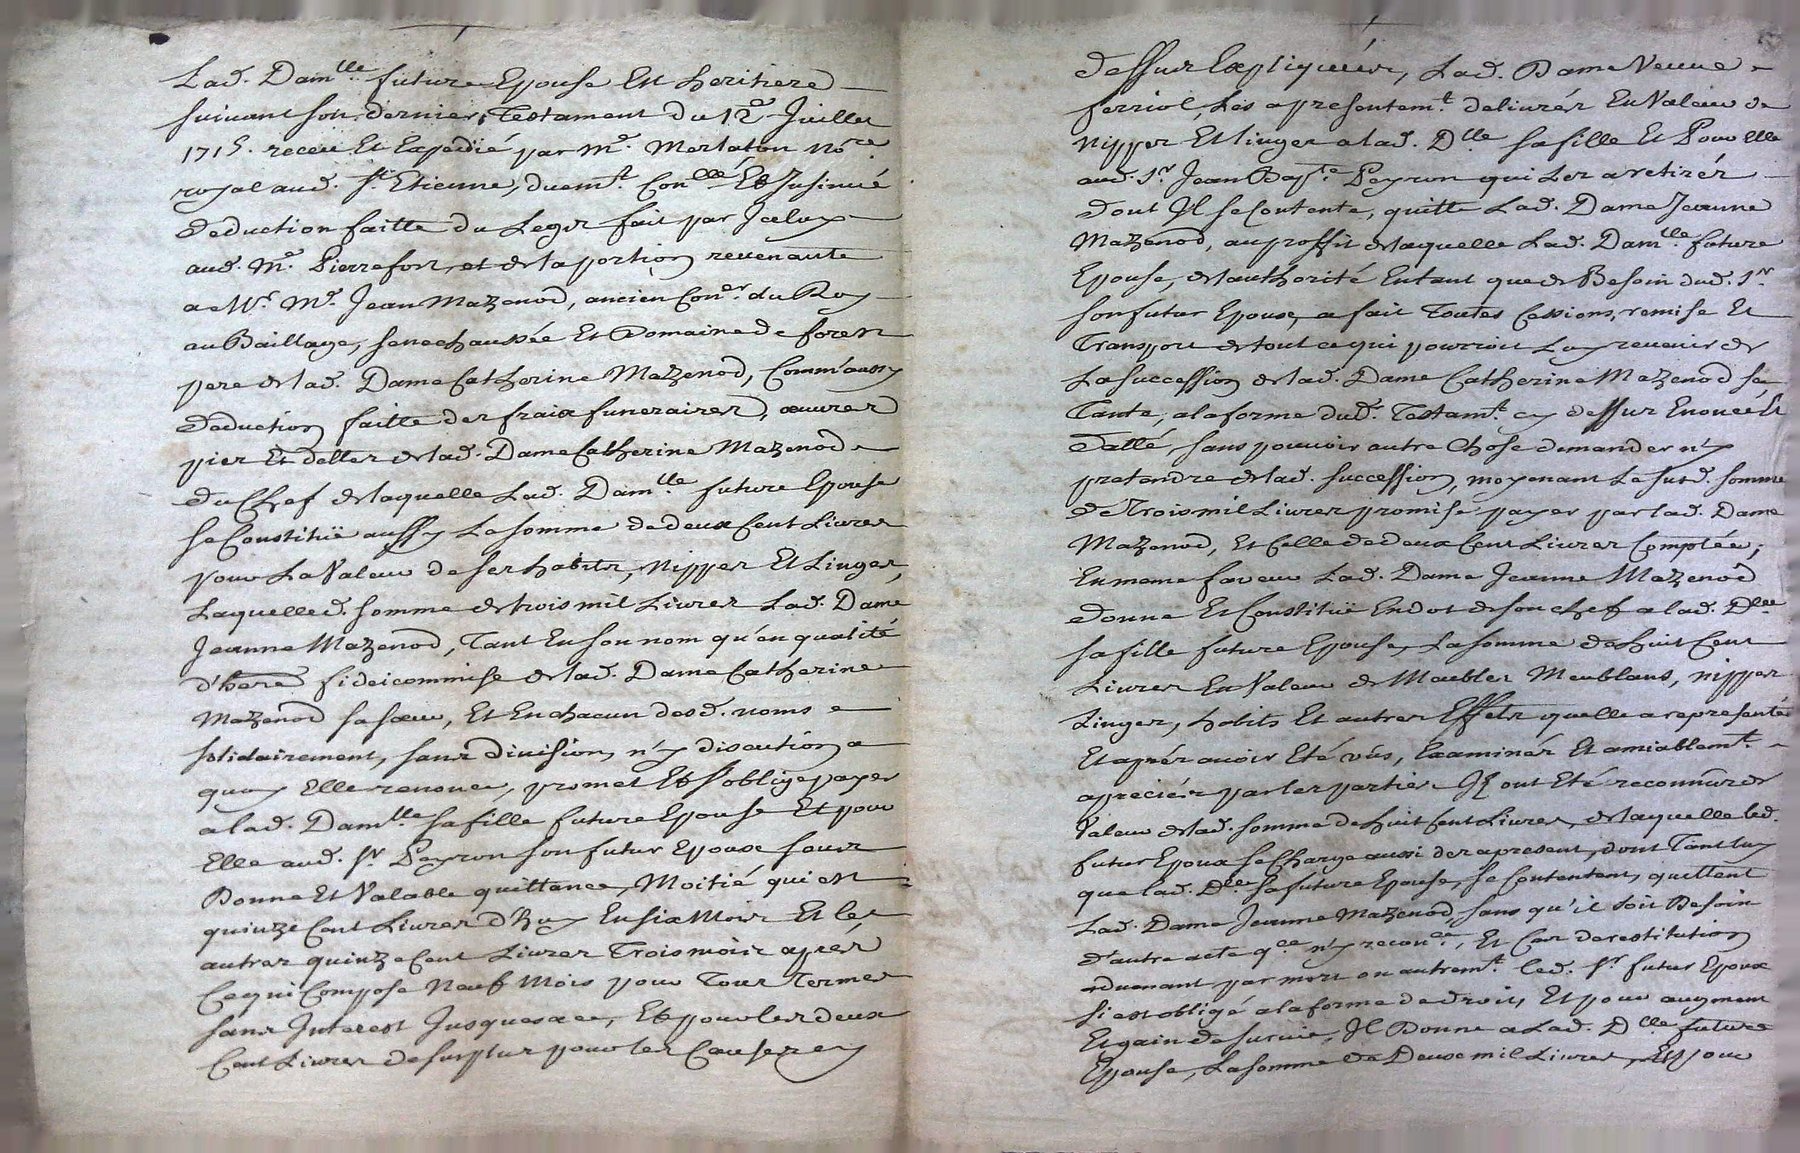 Lad. Dam^lle. future Epouse Est heritiere
suivant son dernier Testament du 12^e Juillet
1715. receu Et Expedié par M^e. Merlaton No^re.
royal aud. S^t. Etienne, duem^t. Con^llé Et Insinué
deduction faitte du Legs fait par Icelux
aud. M^e. Pierrefort, et de la portion revenante
a M^r. M^e. Jean Mazenod, ancien Con^er. du Roy
au Baillage, senechaussée Et Domaine de forest
pere de lad. Dame Catherine Mazenod, Comm'aussy
deduction faitte des fraix funeraires, œuvres
pies Et dettes de lad. Dame Catherine Mazenod
du Chef de laquelle Lad. Dam^lle. future Epouse
se Constitüe aussy La somme de deux Cent Livres
pour La Valeur de ses habits, Nippes Et Linges,
Laquelle d. somme de trois mil Livres Lad. Dame
Jeanne Mazenod, Tant En son nom qu'en qualité
d'here fideicommise de lad. Dame Catherine
Mazenod sa sœur, Et En chacun desd. noms
solidairement, sans division, n'y discution a
quoy Elle renonce, promet Et s'oblige payer
a lad. Dam^lle. sa fille future Epouse Et pour
Elle aud. S^r Peyron son futur Epoux sous
Bonne Et Valable quittance, Moitié qui est
quinze Cent Livres d'huy En six Mois Et les
autres quinze Cent Livres Trois mois aprés
Ce qui Compose Neuf Mois pour Tous Termes
sans Interest Jusques a ce, Et pour les deux
Cent Livres de surplus pour les Causes cy
dessus Expliquées, Lad. Dame Veuve
ferriol, Les a presentem^t. delivrés En Valeur de
Nippes Et linges a lad. D^lle sa fille Et Pour Elle
aud. S^r. Jean Bap^te Peyron qui Les a retirés
dont Il se Contente, quitte Lad. Dame Jeanne
Mazenod, au proffit de laquelle Lad. Dam^lle. future
Epouse, de l'authorité En tant que de Besoin dud. S^r.
son futur Epoux, a fait Toutes Cessions, remise Et
Transport de tout ce qui pourroit Luy revenir de
La succession de lad. Dame Catherine Mazenod sa
Tante, a la forme dud. Testam^t. cy dessus Enoncé Et
datté, sans pouvoir autre Chose demander n'y
pretendre de lad. succession, moyenant La susd. somme
de Trois mil Livres promise payer par lad. Dame
Mazenod, Et Celle de deux Cent Livres Comptée;
En meme faveur Lad. Dame Jeanne Mazenod
donne Et Constitüe En dot de son chef a lad. D^lle
sa fille future Epouse, La somme de huit Cent
Livres En Valeur de Meubles Meublans, nippes
Linges, habits Et autres Effets qu'elle a representé
Et aprés avoir Eté vûs, Examinés Et amiablem^t.
apreciés par les parties Ils ont Eté reconnus de
Valeur de lad. somme de huit Cent Livres, de laquelle led.
futur Epoux se Charge aussi des a present, dont Tant luy
que lad. D^lle sa future Epouse, se Contentent, quittent
Lad. Dame Jeanne Mazenod, sans qu'il soit Besoin
d'autre acte q^ce n'y recon^ce, Et Cas de restitution
advenant par mort ou autrem^t. led. S^r. futur Epoux
s'est obligé a la forme de droit, Et pour augment
Et gain de survie, Il Donne a Lad. D^lle future
Epouse, La somme de Deux mil Livres, Et pour